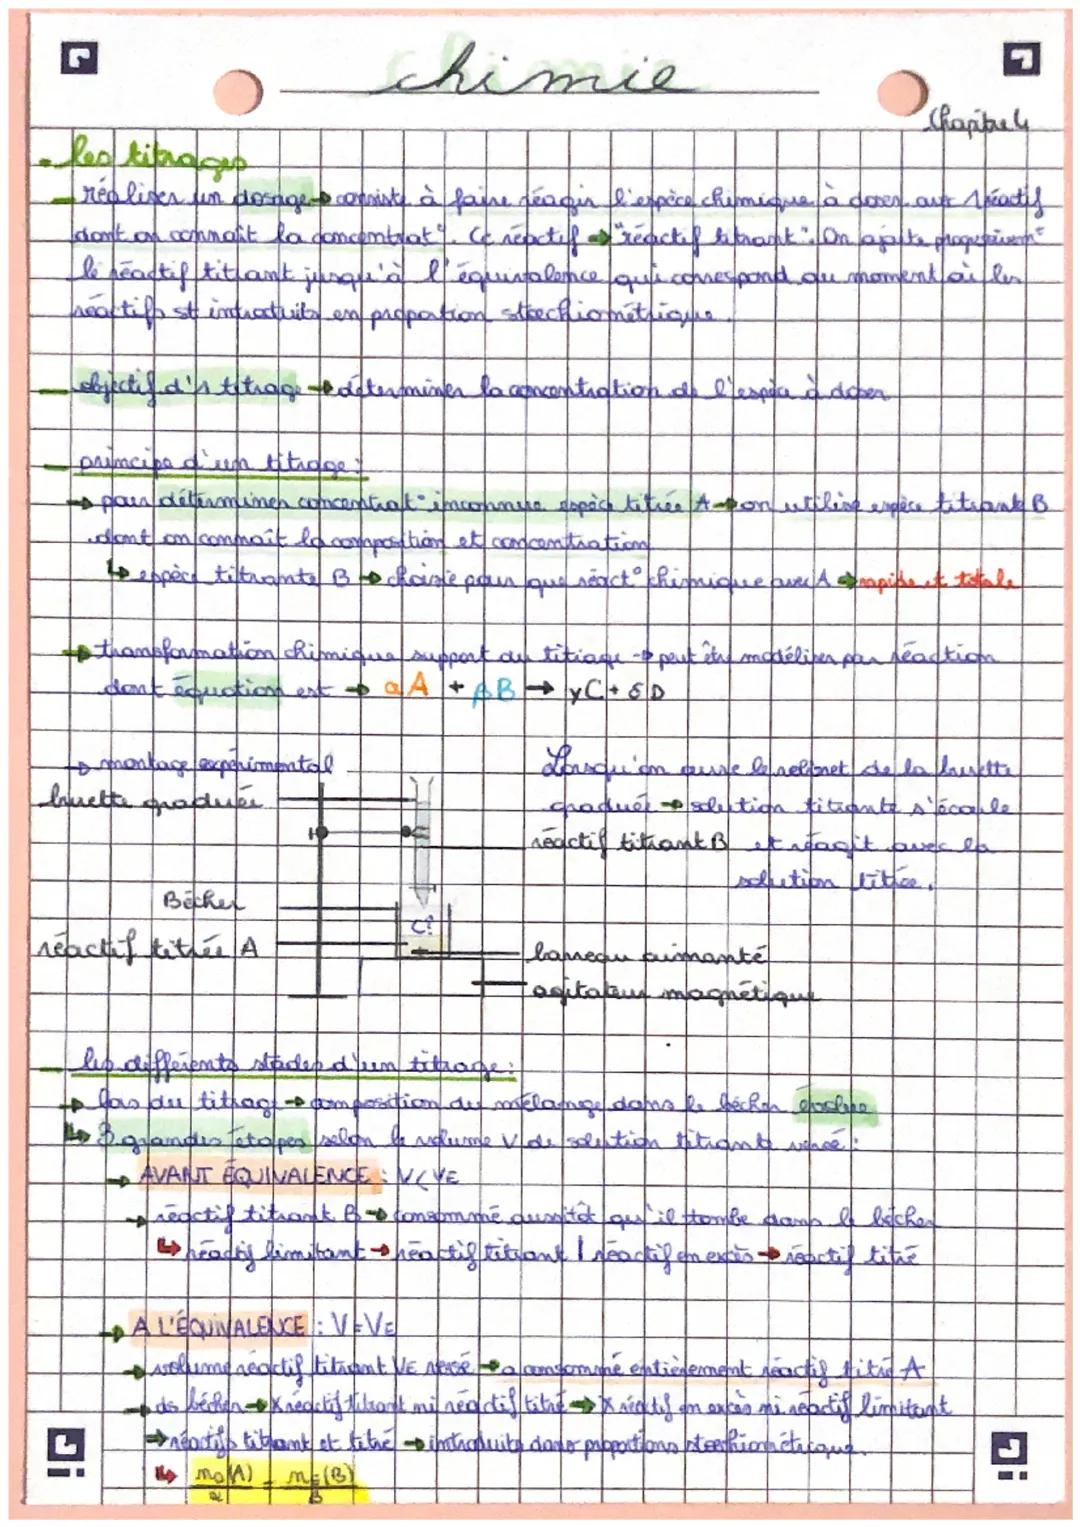 chimie
Chapitre 4
les titrages
réaliser un dosage → consiste à faire réagir l'espèce chimique à doser avec 1 réactif
dont on connaît la concentrat°. Ce réactif → "réactif titrant". On ajoute progressivem^t
le réactif titrant jusqu'à l'équivalence qui correspond au moment où les
réactifs st introduits en proportion stœchiométrique.
objectif d'1 titrage → déterminer la concentration de l'espèce à doser
principe d'un titrage :
→ pour déterminer concentrat° inconnue espèce titrée A → on utilise espèce titrant B
dont on connaît la composition et concentration
↳ espèce titrante B → choisie pour que réact° chimique avec A → rapide et totale
→ transformation chimique support du titrage → peut être modéliser par réaction
dont équation est → αA + βB → γC + δD
→ montage expérimental
Lorsqu'on ouvre le robinet de la burette
burette graduée
graduée → solution titrante s'écoule
réactif titrant B
et réagit avec la
solution titrée.
Bécher
C?
réactif titrée A
barreau aimanté
agitateur magnétique
les différents stades d'un titrage :
→ lors du titrage → composition du mélange dans le bécher évolue
↳ 3 grandes étapes selon le volume V de solution titrante versé :
→ AVANT ÉQUIVALENCE : V < VE
→ réactif titrant B → consommé aussitôt qu'il tombe dans le bécher
↳ réactif limitant → réactif titrant | réactif en excès → réactif titré
→ A L'ÉQUIVALENCE : V = VE
→ volume réactif titrant VE versé → a consommé entièrement réactif titré A
→ ds bécher → X réactif titrant ni réactif titré → X réactif en excès ni réactif limitant
→ réactifs titrant et titré → introduits dans proportions stœchiométrique.
↳ n₀(A)/α = nE(B)/β